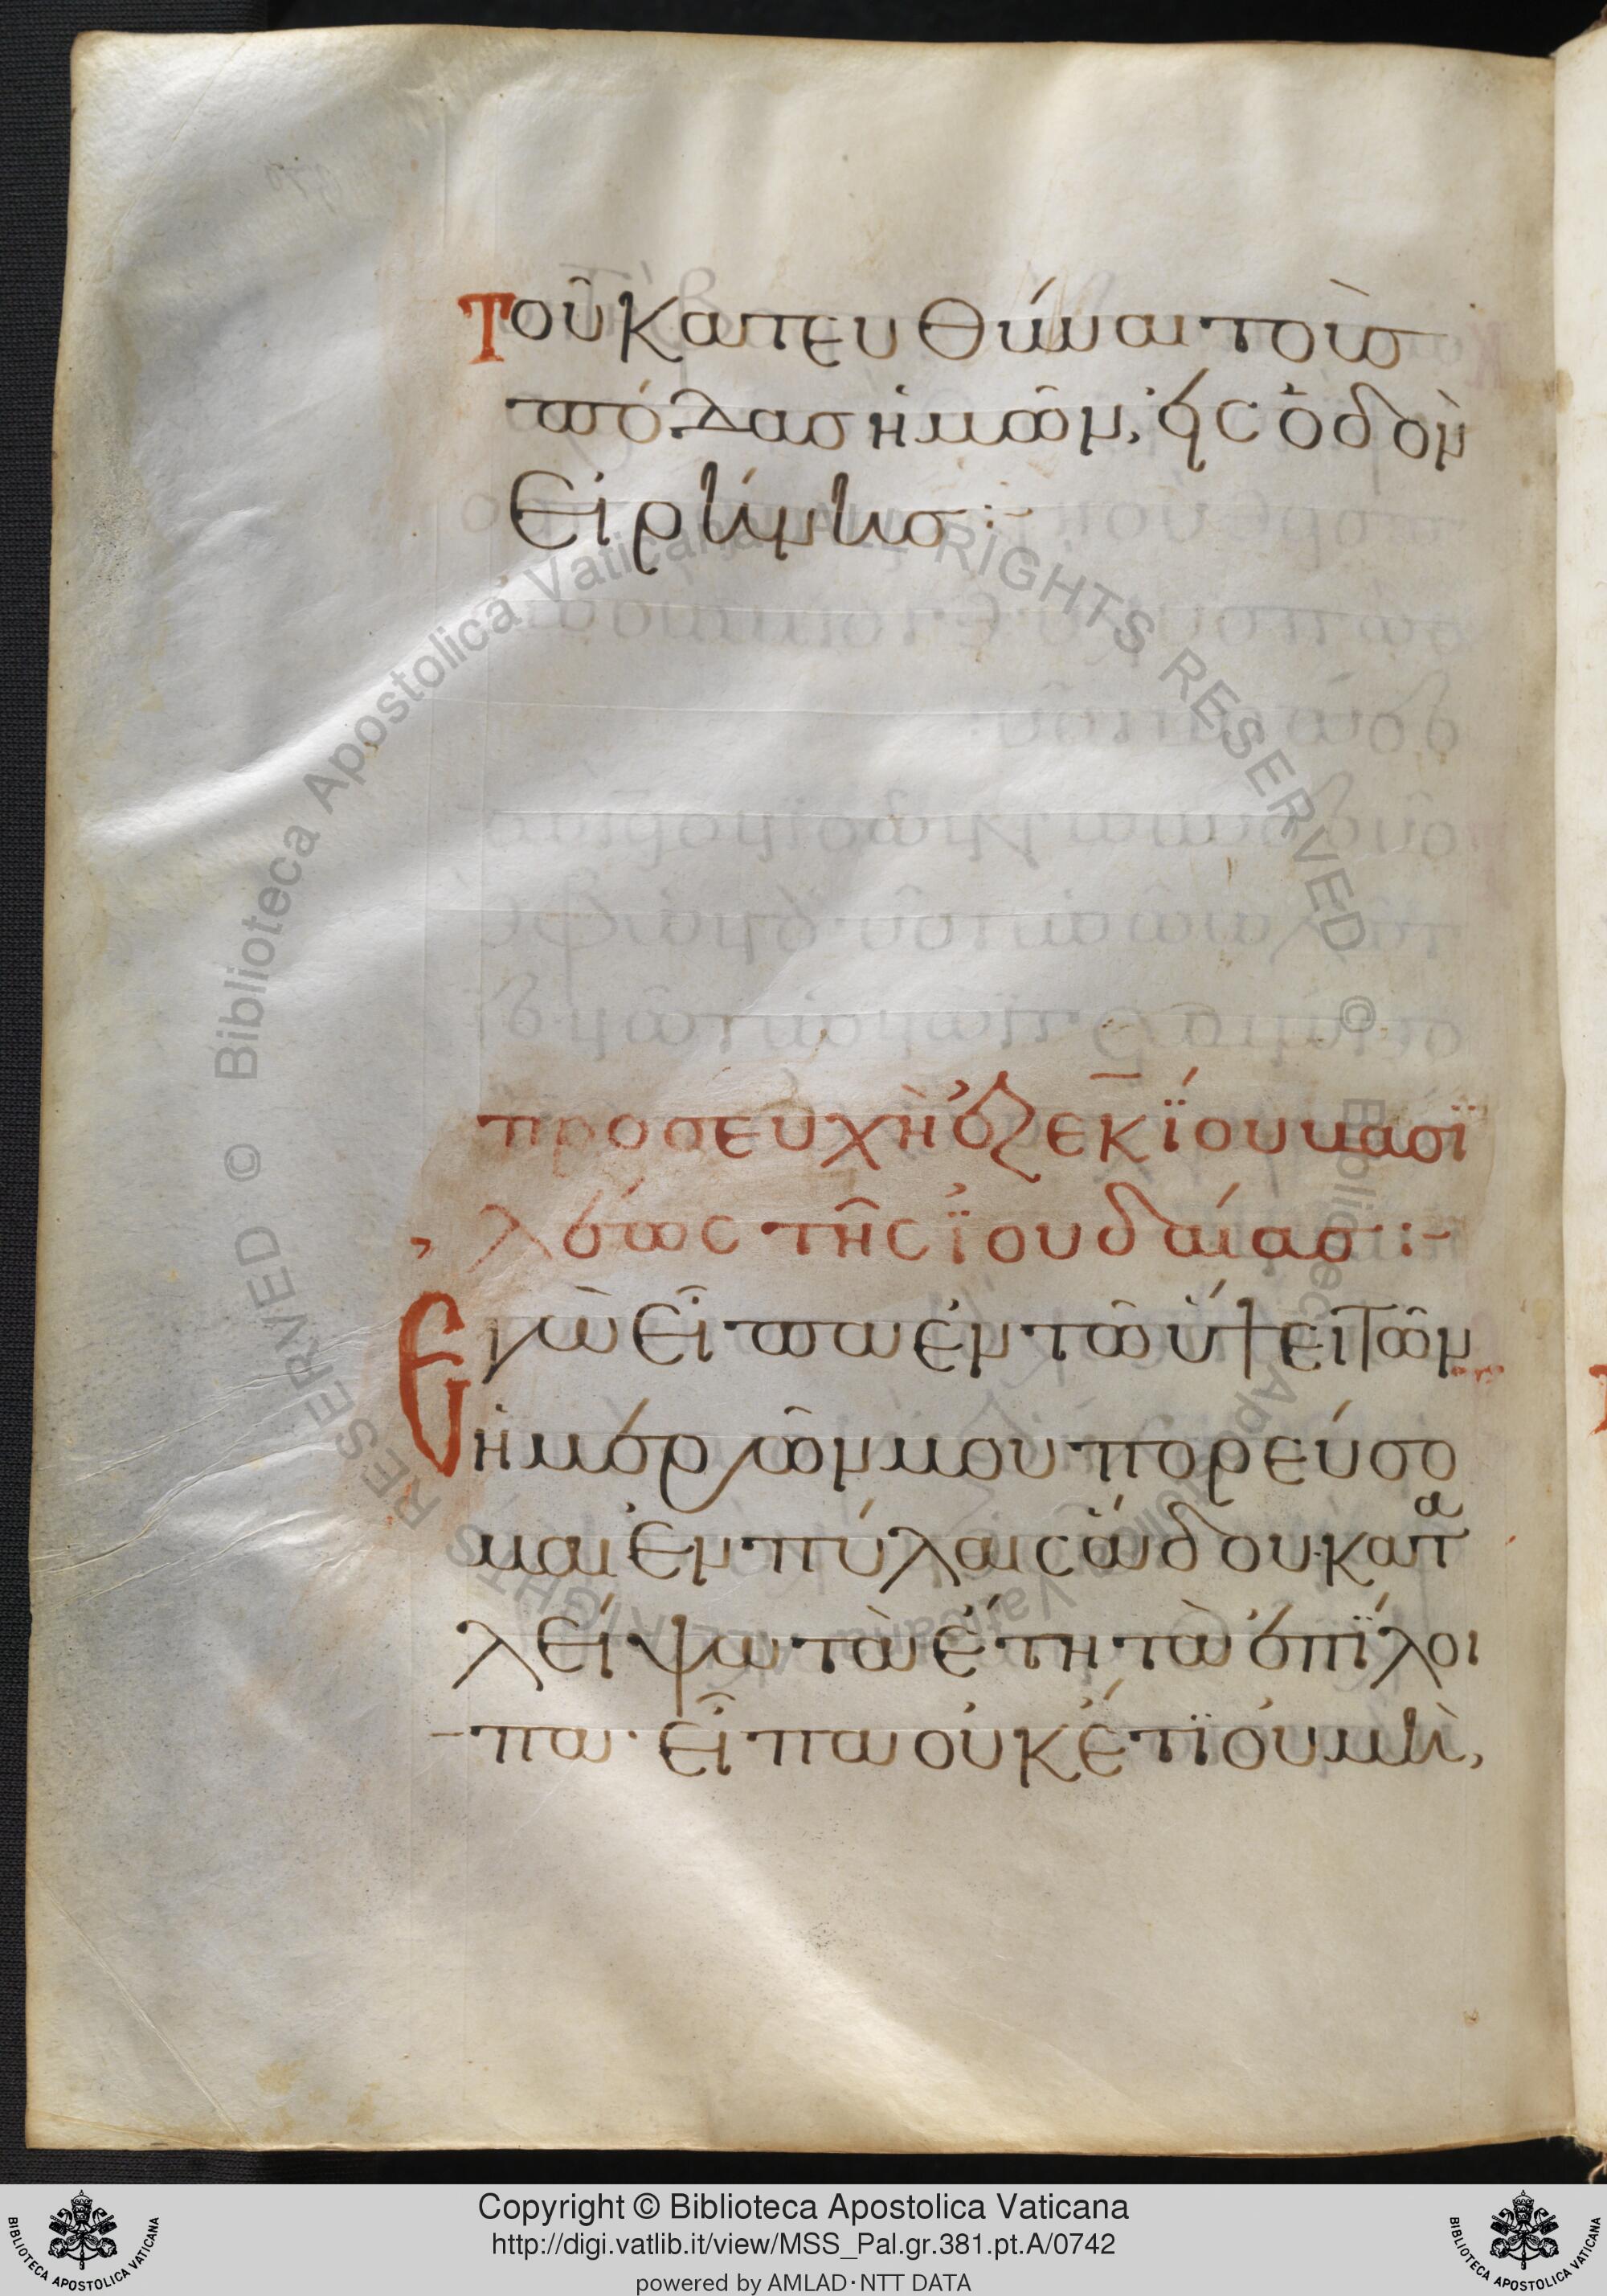 Τοῦ κατευθύναι τοὺσ
πόδασ ἡμῶν, εἰς ὁδὸν
Εἰρήνησ :-
προσευχὴ ἐζεκΐου βασϊ
λέως τῆς ἰουδαίασ :-
Ἐγὼ εἶπα ἐν τῶ ὕψει τῶν
ἡμερῶν μου πορεύσο
μαι ἐν πύλαις ἅδου· κατα
λείψω τὰ ἔτη τὰ ἐπΐλοι
πα· εἶπα οὐκέτϊ οὐ μὴ,
© Biblioteca Apostolica Vaticana ALL RIGHTS RESERVED © Biblioteca Apostolica Vaticana ALL RIGHTS RESERVED
Copyright © Biblioteca Apostolica Vaticana
http://digi.vatlib.it/view/MSS_Pal.gr.381.pt.A/0742
powered by AMLAD·NTT DATA
BIBLIOTECA APOSTOLICA VATICANA
BIBLIOTECA APOSTOLICA VATICANA